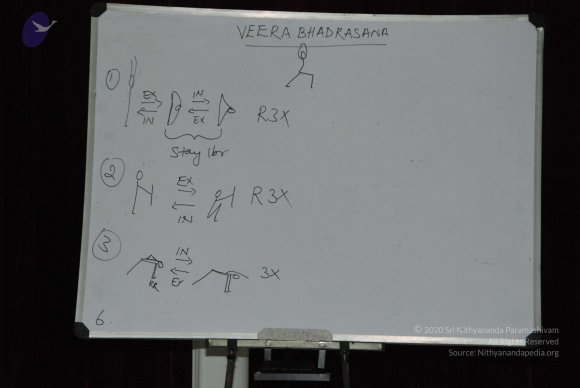 VEERA BHADRASANA
1
EX IN
IN EX R3X
Stay 1br
2
EX
IN R3X
3
IN
EX EX 3X
6.
© 2020 Sri Nithyananda Paramashivam
All Rights Reserved
Source: Nithyanandapedia.org